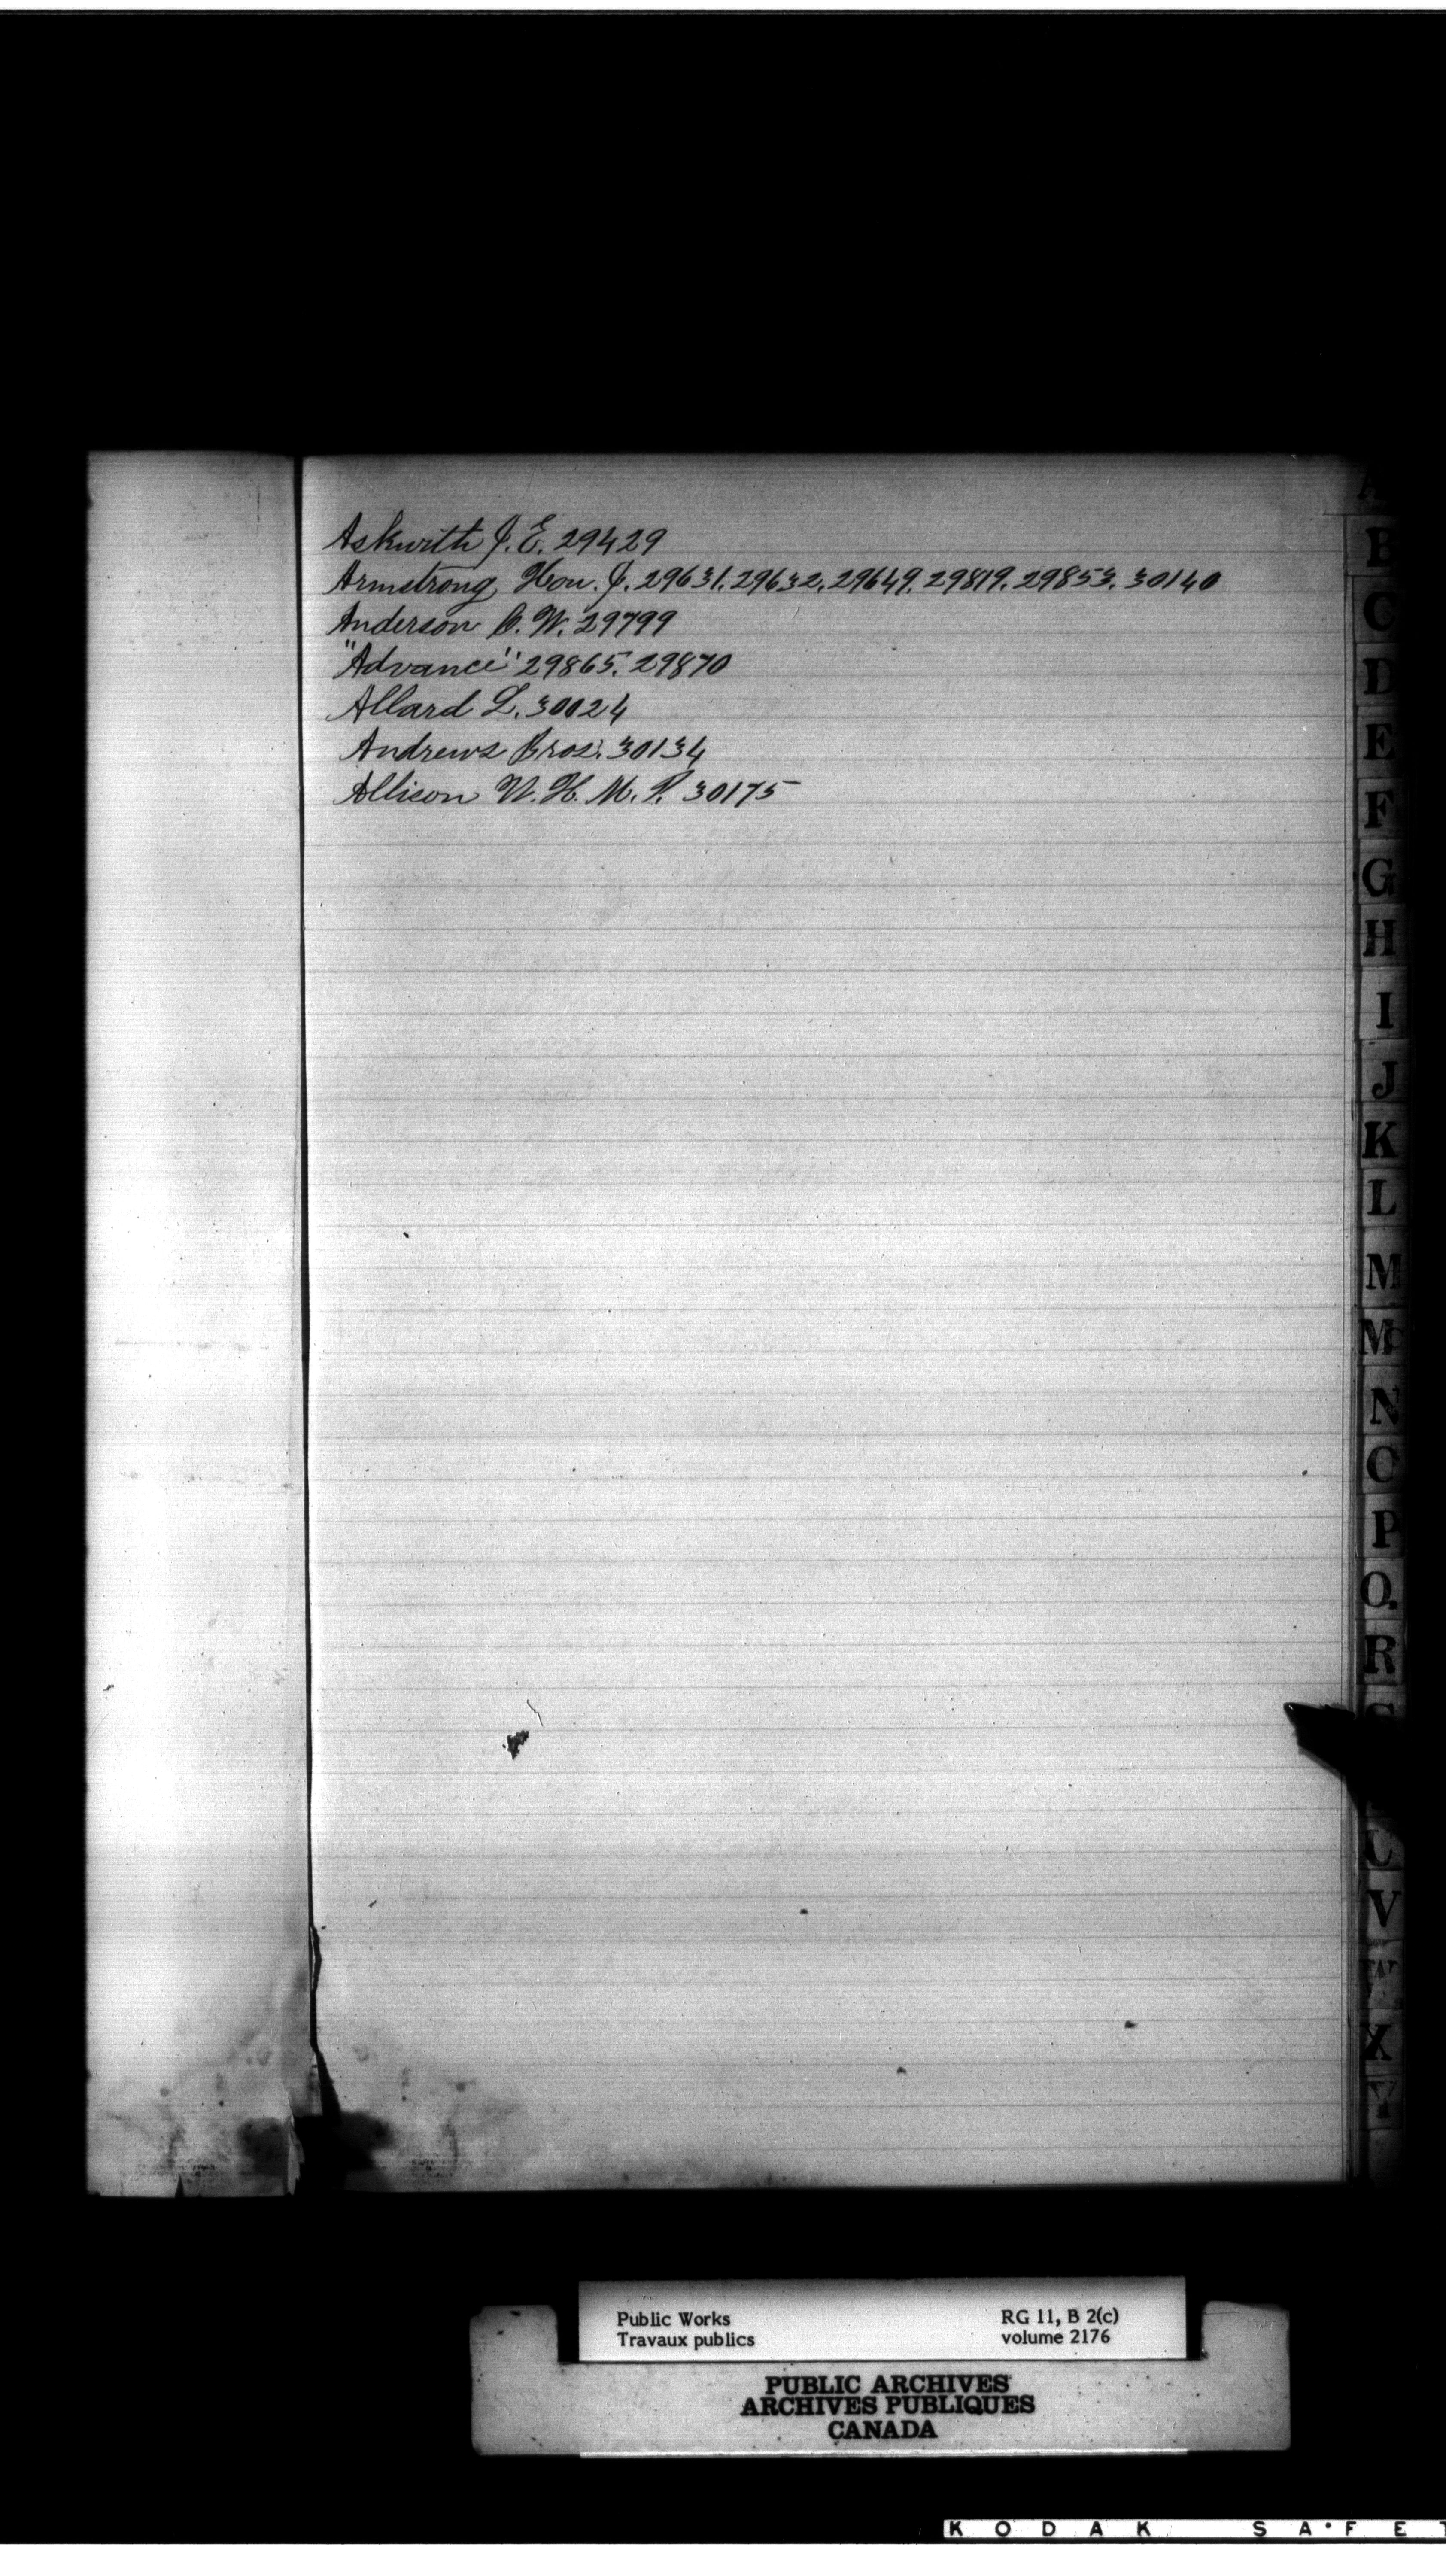 Askwith J. E. 29429
Armstrong, Hon. J. 29631. 29632. 29649. 29819. 29853. 30140
Anderson C. W. 29799
"Advance" 29865. 29870
Allard L. 30024
Andrews Bros. 30134
Allison W. H. M. P. 30175
A
B
C
D
E
F
G
H
I
J
K
L
M
Mc
N
O
P
Q.
R
U
V
W
X
Y
Public Works
Travaux publics
RG 11, B 2(c)
volume 2176
PUBLIC ARCHIVES
ARCHIVES PUBLIQUES
CANADA
KODAK SAFET